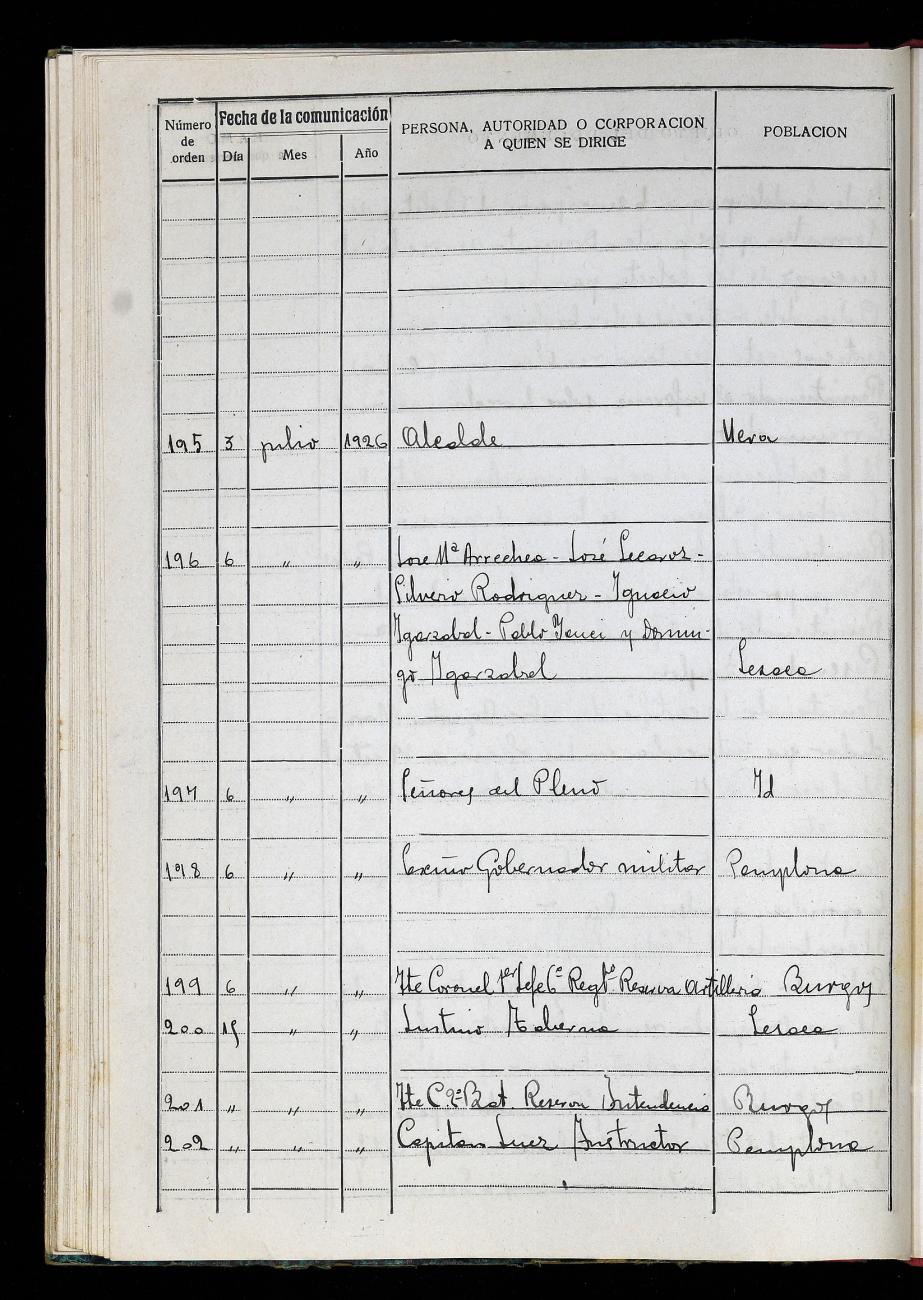 Número de orden Fecha de la comunicación Día Mes Año PERSONA, AUTORIDAD O CORPORACION A QUIEN SE DIRIGE POBLACION
195 3 julio 1926 Alcalde Vera
196 6 " " Jose Mª Arrechea - José Lecaroz -
Silverio Rodriguez - Ignacio
Igarzabal - Pablo Yanci y Domin-
go Igarzabal Lesaca
197 6 " " Señores del Pleno Id
198 6 " " Excmo Gobernador militar Pamplona
199 6 " " Tte Coronel 1er Jefe 6º Regtº Reserva Artilleria Burgos
200 15 " " Justino Taberna Lesaca
201 " " " Tte C. 2º Bat. Reserva Intendencia Burgos
202 " " " Capitan Juez Instructor Pamplona